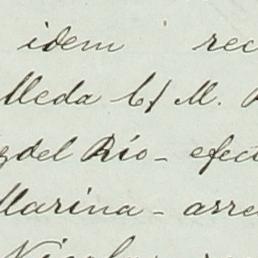 idem rec
lleda C/ M.
zdel Río - efect
Marina - arre
Nicolas